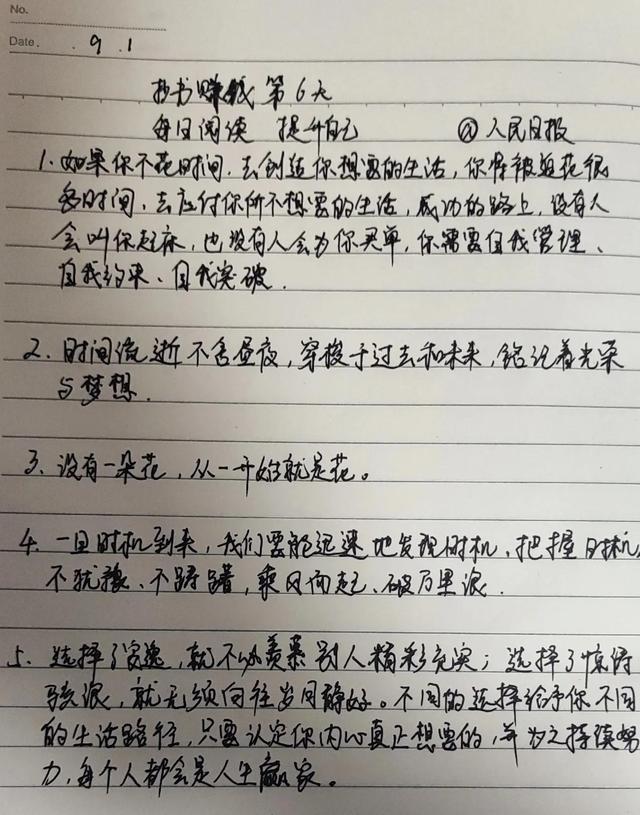 No.
Date. 9.1
抄书赚钱第6天
每日阅读 提升自己 @人民日报
1. 如果你不花时间, 去创造你想要的生活, 你将被迫花很
多时间, 去应付你所不想要的生活, 成功的路上, 没有人
会叫你起床, 也没有人会为你买单, 你需要自我管理、
自我约束、自我突破.
2. 时间流逝不舍昼夜, 穿梭于过去和未来, 铭记着光荣
与梦想.
3. 没有一朵花, 从一开始就是花。
4. 一旦时机到来, 我们要能迅速地发现时机、把握时机,
不犹豫、不踌躇, 乘风而起、破万里浪.
5. 选择了安逸, 就不必羡慕别人精彩充实; 选择了惊涛
骇浪, 就无须向往岁月静好。不同的选择给予你不同
的生活路径, 只要认定你内心真正想要的, 并为之持续努
力, 每个人都会是人生赢家。